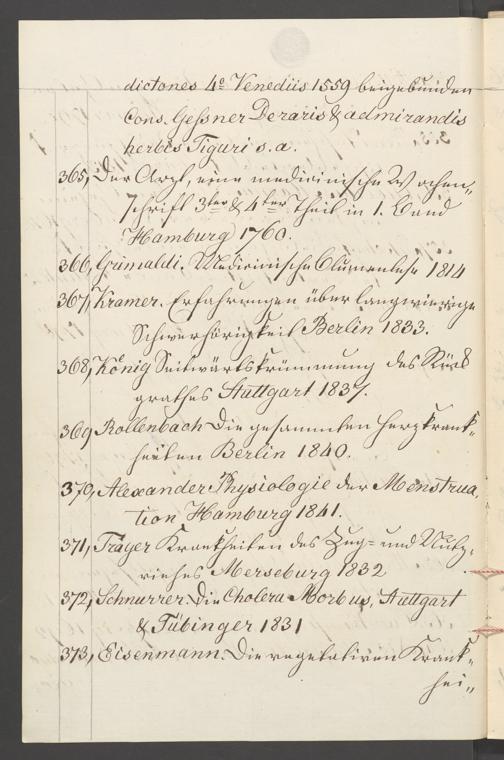 dictones 4º Venediis 1559 beigebunden
Cons. Geßner De raris & admirandis
herbis Tiguri s. a.
365, Der Arzt, eine medicinische Wochen„
schrift 3ter & 4ter Theil in 1. Band
Hamburg 1760.
366, Grimaldi. Medicinische Blumenlese 1814
367, Kramer. Erfahrungen über langwierige
Schwerhörigkeit Berlin 1833.
368, König Seitwärtskrümmung des Rück
grathes Stuttgart 1837.
369 Rollenbach Die gesammten Herzkrank„
heiten Berlin 1840.
379, Alexander Physiologie der Menstrua„
tion Hamburg 1841.
371, Träger Krankheiten des Zug= und Nutz„
viehes Merseburg 1832
372, Schnurrer. Die Cholera Morbus, Stuttgart
& Tübinger 1831
373, Eisenmann. Die vegetativen Krank„
hei„